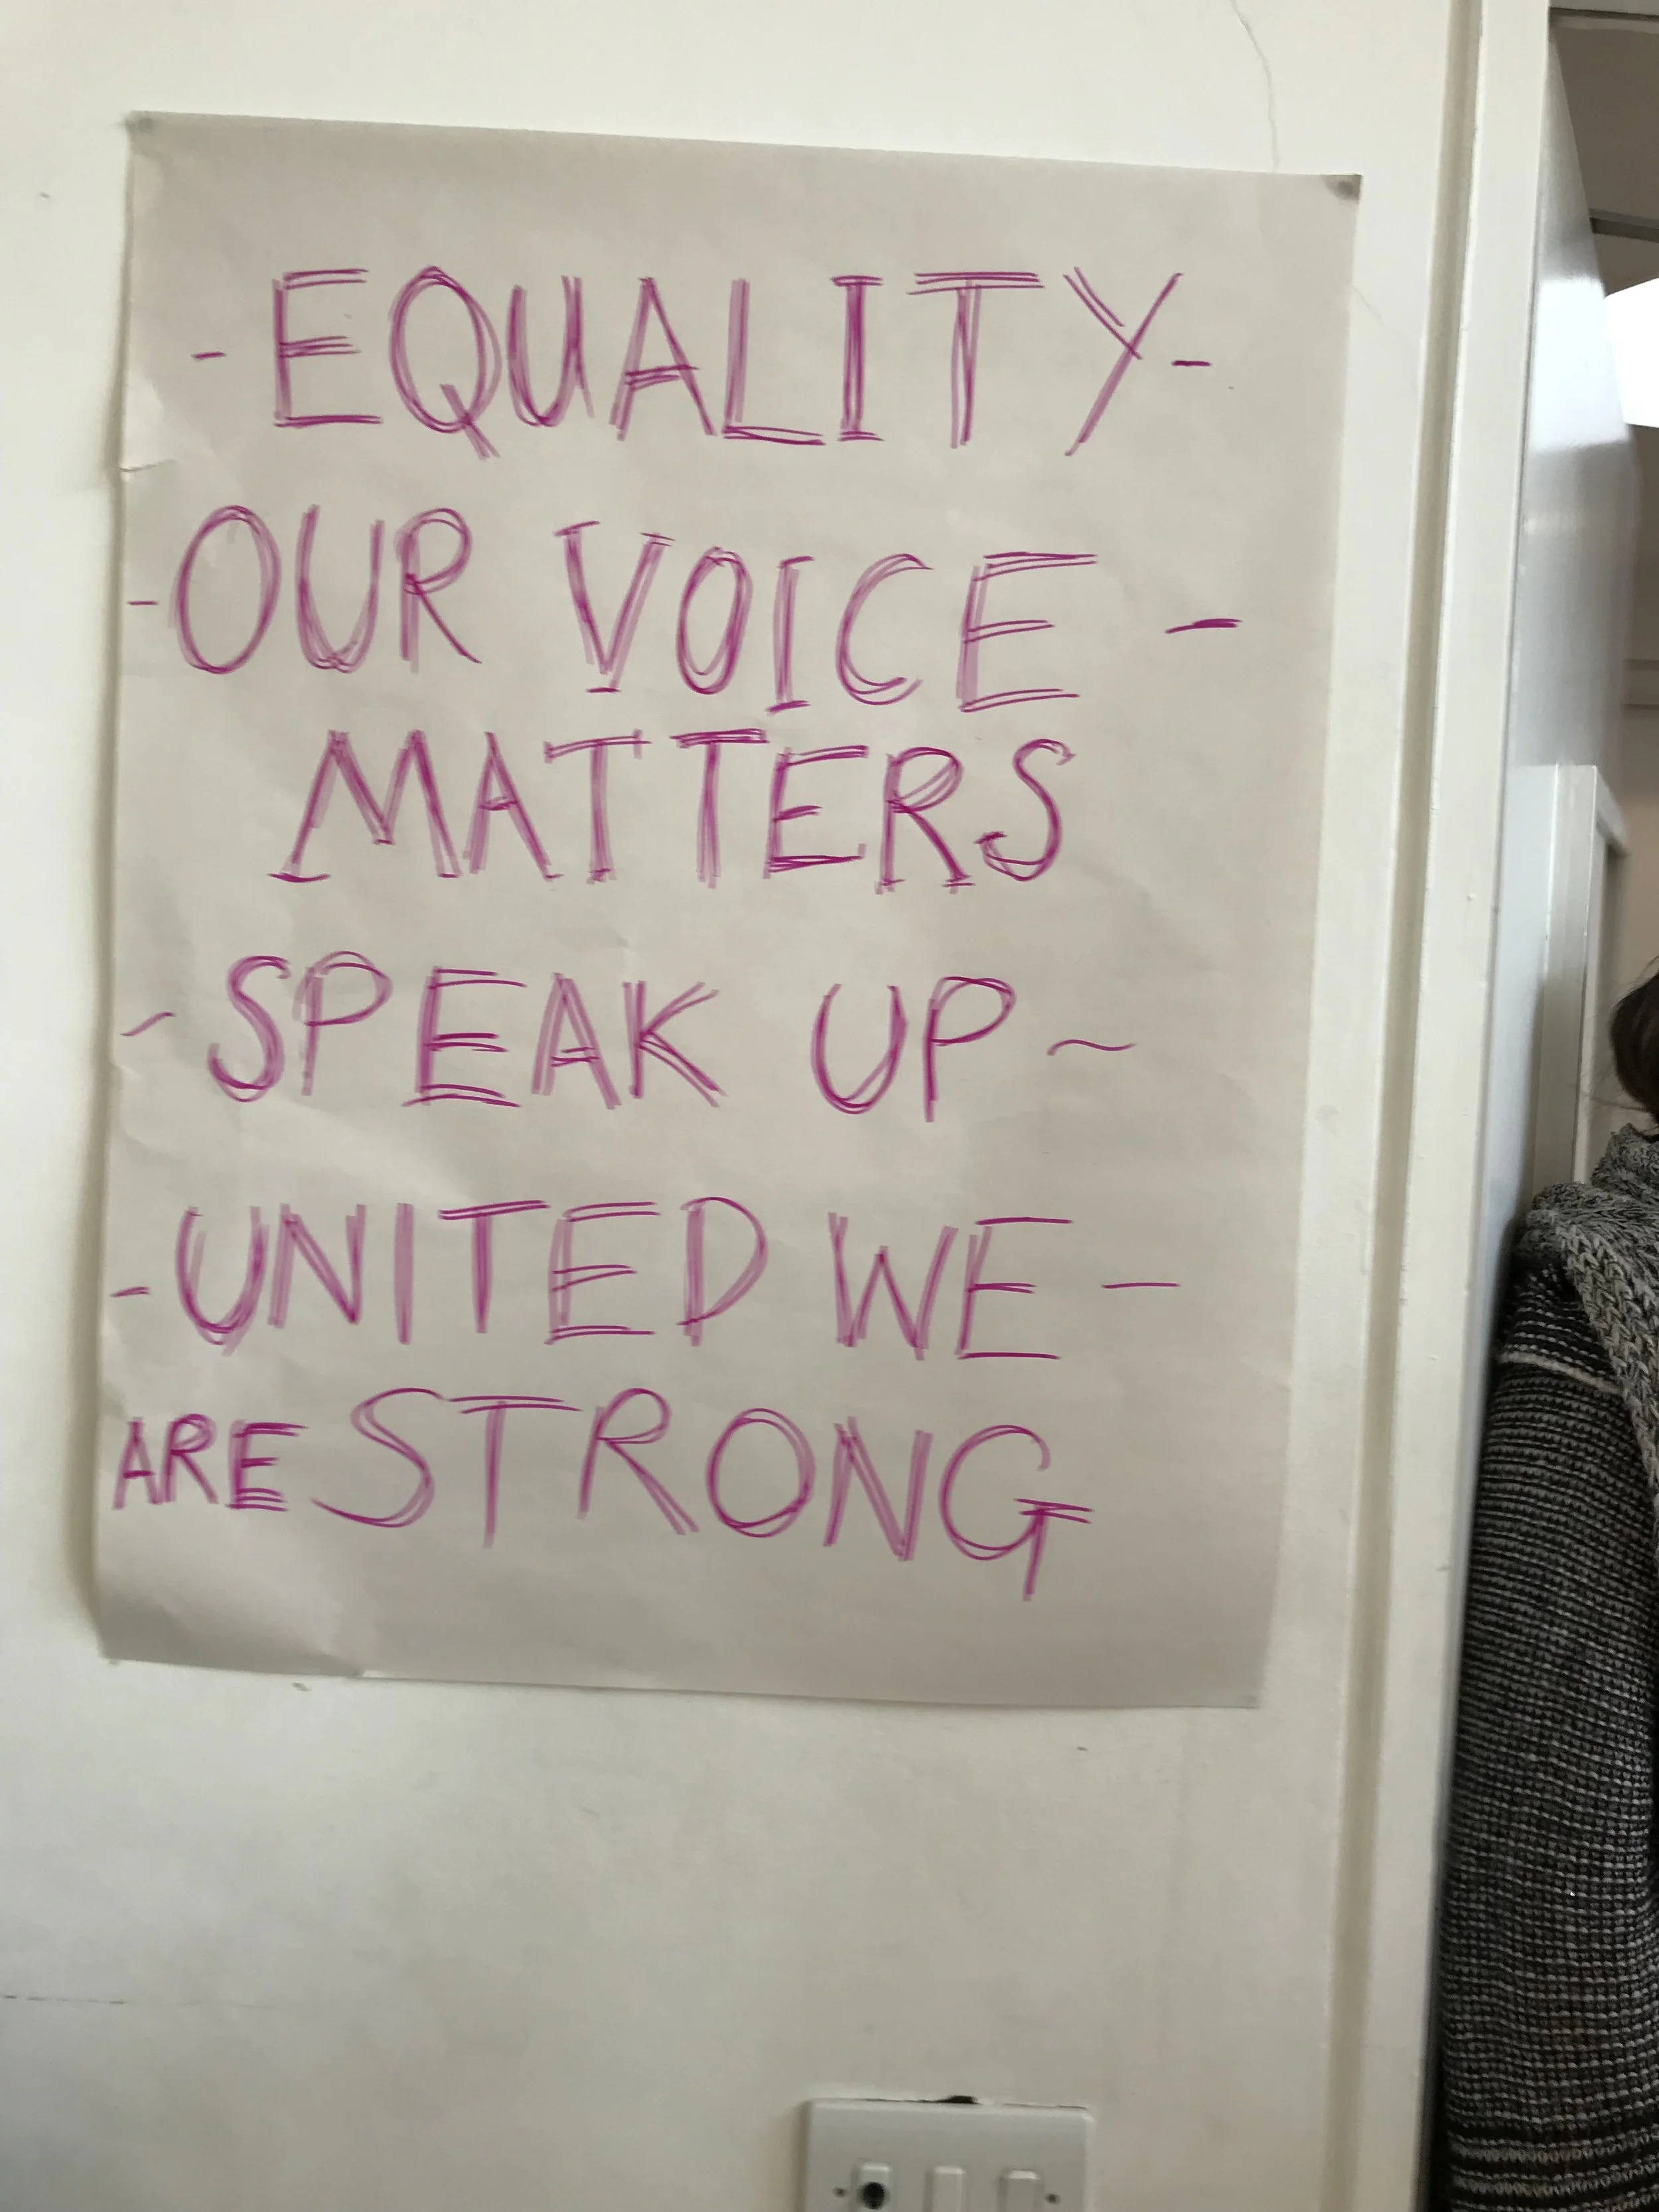 - EQUALITY -
- OUR VOICE -
MATTERS
~ SPEAK UP ~
- UNITED WE -
ARE STRONG